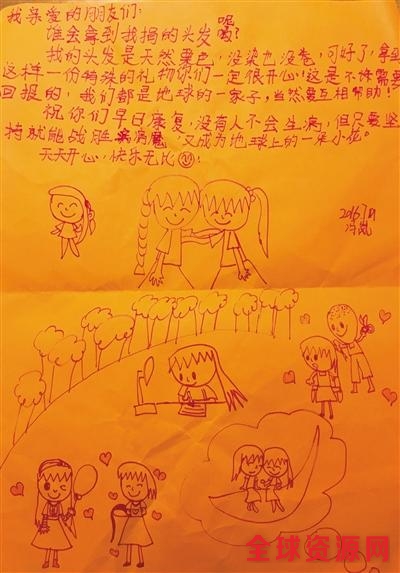 我亲爱的朋友们：
谁会拿到我捐的头发呢？
我的头发是天然栗色，没染也没卷，可好了，拿到
这样一份特殊的礼物你们一定很开心！这是不许需要
回报的，我们都是地球的一家子，当然要互相帮助！
祝你们早日康复，没有人不会生病，但只要坚
持就能战胜病魔，又成为地球上的一朵小花。
天天开心，快乐无比
2016.
冯岚
全球资源网